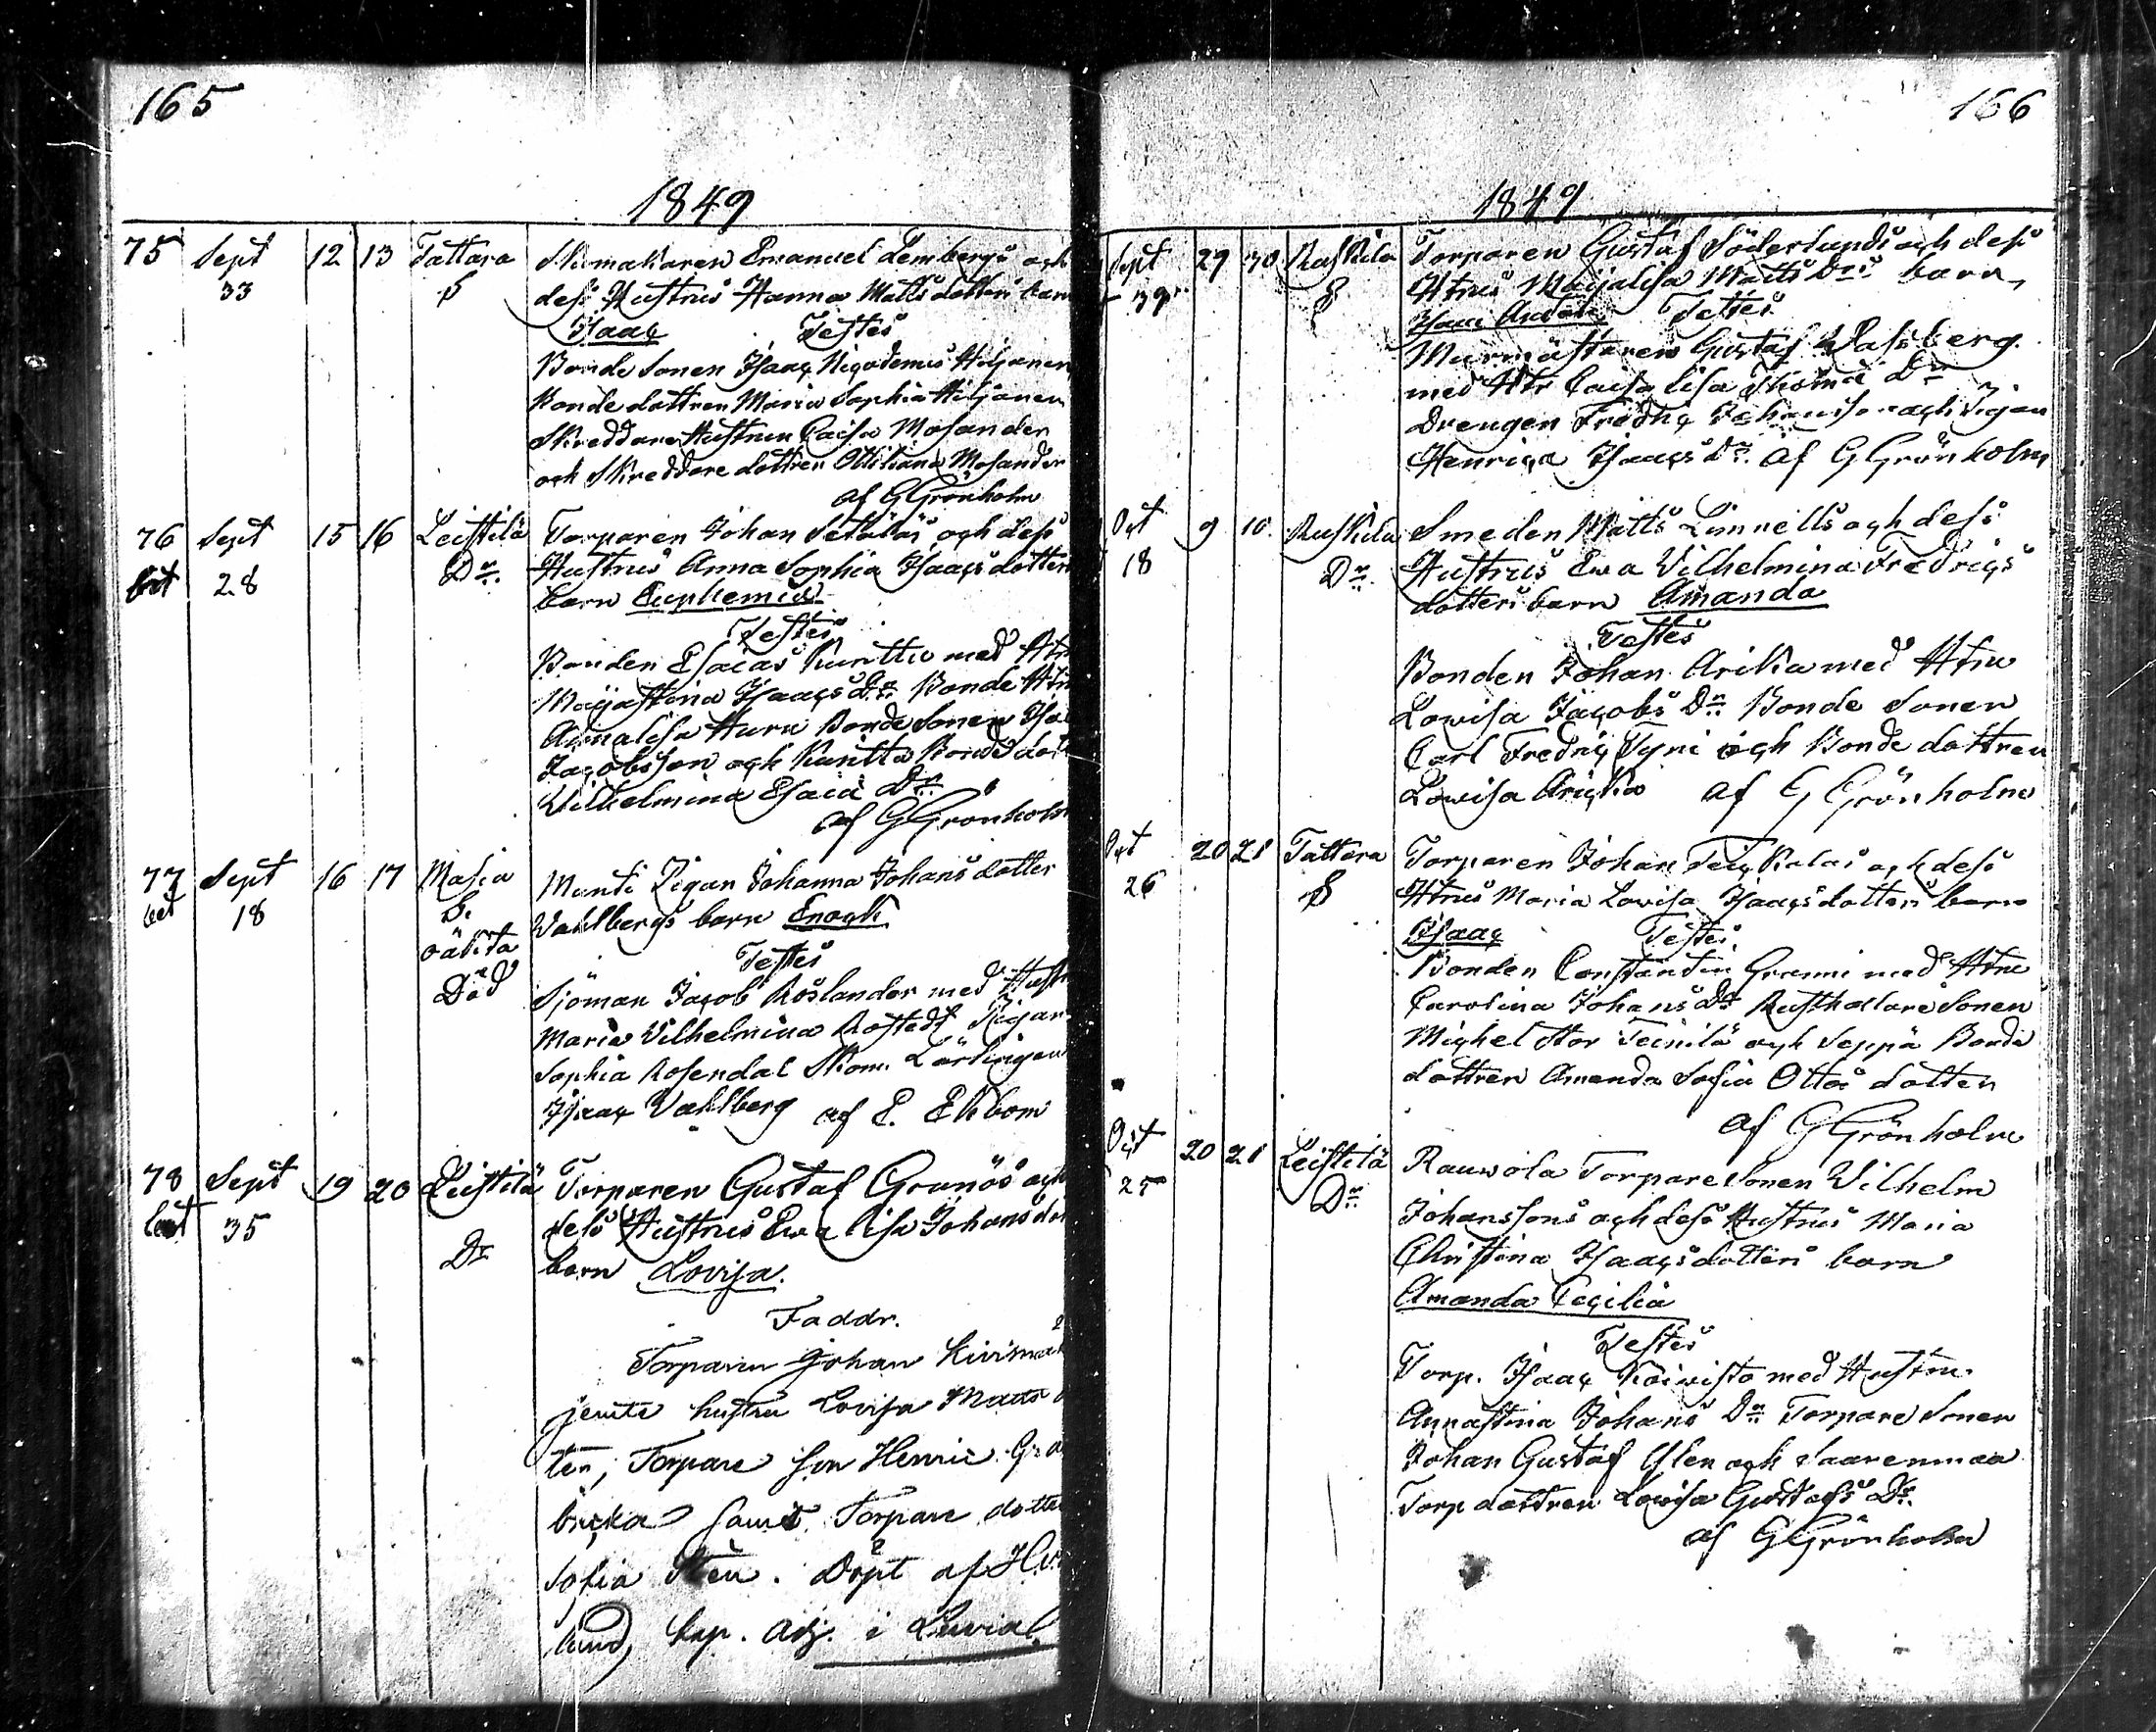 165
1849
75 Sept 12 13 Tattara Skomakaren Emanuel Lembergs och
33 S dess Hustrus Hanna Matts dotters barn
Isaac Testes
Bonde Sonen Isaac Nicodemus Hiljanen
Bonde dottren Maria Sophia Hiljanen
Skreddare Hustrun Caisa Mosander
och Skreddare dottren Ottiliana Mosander
af G Grönholm
76 Sept 15 16 Leistilä Torparen Johan Setäläs och dess
28 Dr. Hustrus Anna Sophia Isaacs dotters
barn Euphemia
Testes
Bonden Esaias Kunttu med Htr
Majastina Isaacs Dr. Bonde Htr
Annalisa Huru Bonde Sonen Isa
Jacobsson och Kuntta Bonde dot
Vilhelmina Esaiæ Dr
af G Grönholm
77 Sept 16 17 Masia Menti Pigan Johanna Johans dotter
18 S. Wahlbergs barn Enoch
oäkta Testes
Död Sjöman Jacob Roslander med Hustr
Maria Vilhelmina Rostedt Pigan
Sophia Rosendal Skom. Lärlingen
Isaac Wahlberg af E. Ekbom
78 Sept 19 20 Leistilä Torparen Gustaf Granös och
35 Dr dess Hustrus Ewa Lisa Johans dr
barn Lovisa.
Faddr.
Torparen Johan Kivimäk
jemte hustru Lovisa Matts d
ter, Torpare son Henric Gr
backa samt Torpare dotter
Sofia Sten. Döpt af H
lund, Kap. Adj. i Luvia.
166
1849
Sept 29 30 Ruskila Torparen Gustaf Söderlunds och dess
39 S Htrus Majalisa Matts Drs barn,
Isaac Anton Testes
Murmästaren Gustaf Dahlberg
med Htr Caisa Lisa Thomæ Dr
Drengen Fredric Johansson och Pigan
Henrica Isaacs Dr. af G Grönholm
Oct 9 10. Ruskila Smeden Matts Linnells och dess
18 Dr. Hustrus Ewa Vilhelmina Fredrics
dotters barn Amanda
Testes
Bonden Johan Arikka med Htru
Lowisa Jacobs Dr. Bonde Sonen
Carl Fredric Tyni och Bonde dottren
Lowisa Aricka af G Grönholm
Oct 20 21 Tattara Torparen Johan Teickalas och dess
26 S Htrus Maria Lovisa Isaacs dotters barn
Isaac Testes
Bonden Constantin Grenni med Htru
Carolina Johans Dr Rusthållare Sonen
Michel Stor Teinilä och Seppä Bonde
dottren Amanda Sofia Ottos dotter
af G Grönholm
Oct 20 21 Leistilä Rauwola Torpare Sonen Wilhelm
25 Dr. Johanssons och dess Hustrus Maria
Christina Isaacs dotters barn
Amanda Cecilia
Testes
Torp. Isaac Koiwisto med Hustru
Annastina Johans Dr Torpare Sonen
Johan Gustaf Ylen och Saarenmaa
Torp dottren Lowisa Gustafs Dr.
af G Grönholm